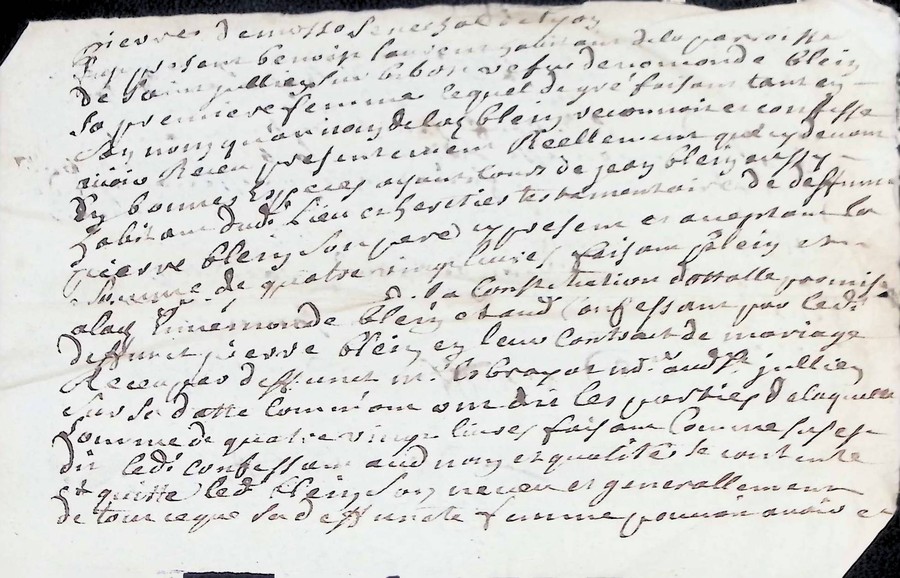 pierres de messe senechal de lyon
furpresent benoist laurent habitant de la parroisse
de saint jullien sur bibost vefve denomonde blein
sa premiere femme lequel de gré faisant tant en
son nom qu'au nom de lad blein reconnoit et confesse
avoir Receu presentement Reellement que cy devant
En bonnes Especes ayant cours de jean blein aussy
habitant dud. lieu et heritier testamentaire de deffunt
pierre blein son pere cy present et acceptant la
somme de quatre vingt livres faisant plein et
de la Constitution dottalle promise
a lad Ennemonde blein et aud. Confessant par led.
deffunt pierre blein en leur contract de mariage
Receu par deffunt m.e nre aud st jullien
sur sa dotte comm'ont dit les parties de laquelle
somme de quatre vingt livres faisant comme sus est
dit led. confessant aud nom et qualités se contente
et quitte led. blein son neveu et generallement
de tout ce que sa deffuncte femme pouvoit avoir et